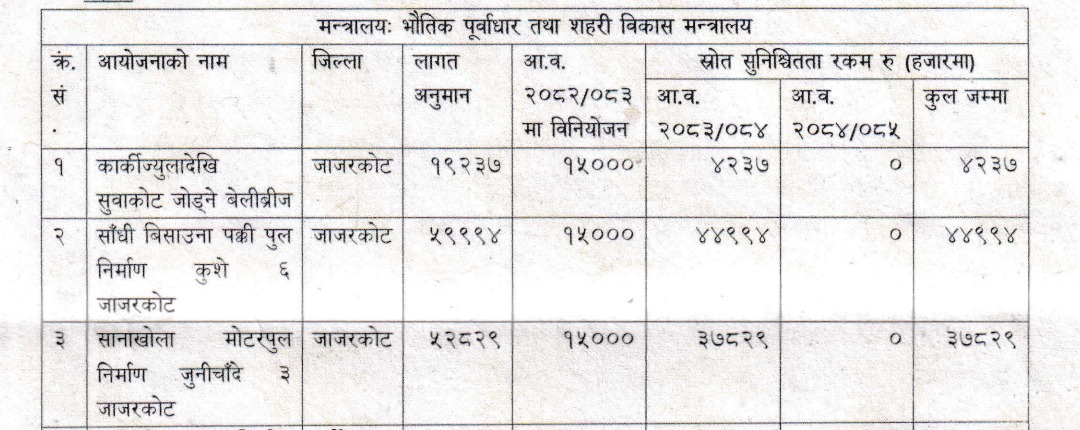 मन्त्रालयः भौतिक पूर्वाधार तथा शहरी विकास मन्त्रालय
क्रं. सं. आयोजनाको नाम जिल्ला लागत अनुमान आ.व. २०८२/०८३ मा विनियोजन स्रोत सुनिश्चितता रकम रु (हजारमा)
आ.व. २०८३/०८४ आ.व. २०८४/०८५ कुल जम्मा
१ कार्कीज्युलादेखि जाजरकोट १९२३७ १५००० ४२३७ ० ४२३७
सुवाकोट जोड्ने बेलीब्रीज
२ साँधी बिसाउना पक्की पुल जाजरकोट ५९९९४ १५००० ४४९९४ ० ४४९९४
निर्माण कुशे ६
जाजरकोट
३ सानाखोला मोटरपुल जाजरकोट ५२८२९ १५००० ३७८२९ ० ३७८२९
निर्माण जुनीचाँदे ३
जाजरकोट